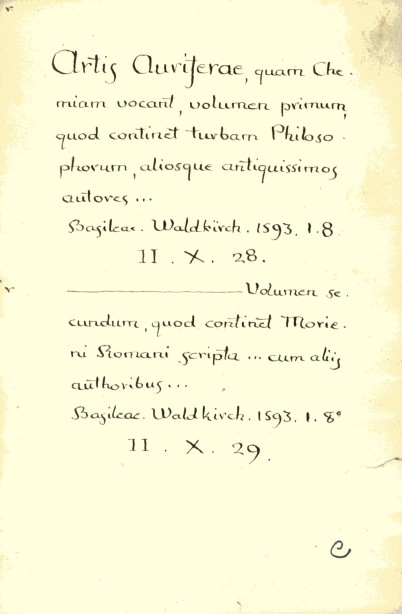 Artis Auriferae, quam Che-
miam vocant, volumen primum,
quod continet turbam Philoso-
phorum, aliosque antiquissimos
autores...
Basileae. Waldkirch. 1593. 1. 8.
II. X. 28.
Volumen se-
cundum, quod continet Morie-
ni Romani scripta... cum aliis
authoribus...
Basileae. Waldkirch. 1593. 1. 8°
II. X. 29.
C